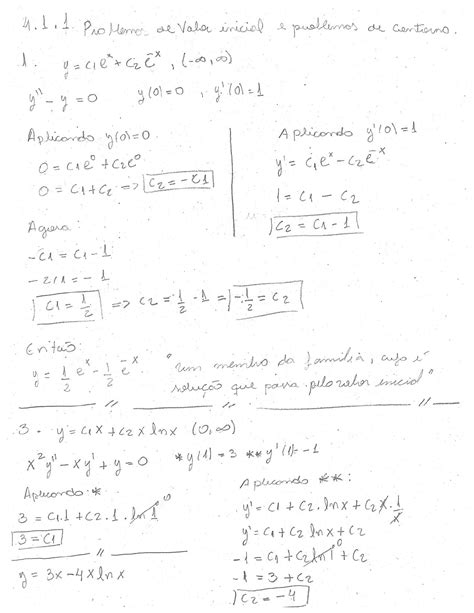 4.1.1. Problemas de Valor inicial e problemas de contorno.
1. y = c1e^x + c2e^-x, (-∞, ∞)
y'' - y = 0 y(0) = 0, y'(0) = 1
Aplicando y(0) = 0
0 = c1e^0 + c2e^0
0 = c1 + c2 => c2 = -c1
Aplicando y'(0) = 1
y' = c1e^x - c2e^-x
1 = c1 - c2
c2 = c1 - 1
Agora:
-c1 = c1 - 1
-2c1 = -1
c1 = 1/2 => c2 = 1/2 - 1 = -1/2 = c2
Então:
y = 1/2 e^x - 1/2 e^-x
"um membro da família, cujo é
solução que passa pelo valor inicial"
3. y = c1x + c2x ln x (0, ∞)
x^2y'' - xy' + y = 0 *y(1) = 3 **y'(1) = -1
Aplicando *
3 = c1.1 + c2.1.ln 1 0
3 = c1
y = 3x - 4x ln x
Aplicando **:
y' = c1 + c2.ln x + c2x.1/x
y' = c1 + c2 ln x + c2
-1 = c1 + c2 ln 1 0 + c2
-1 = 3 + c2
c2 = -4